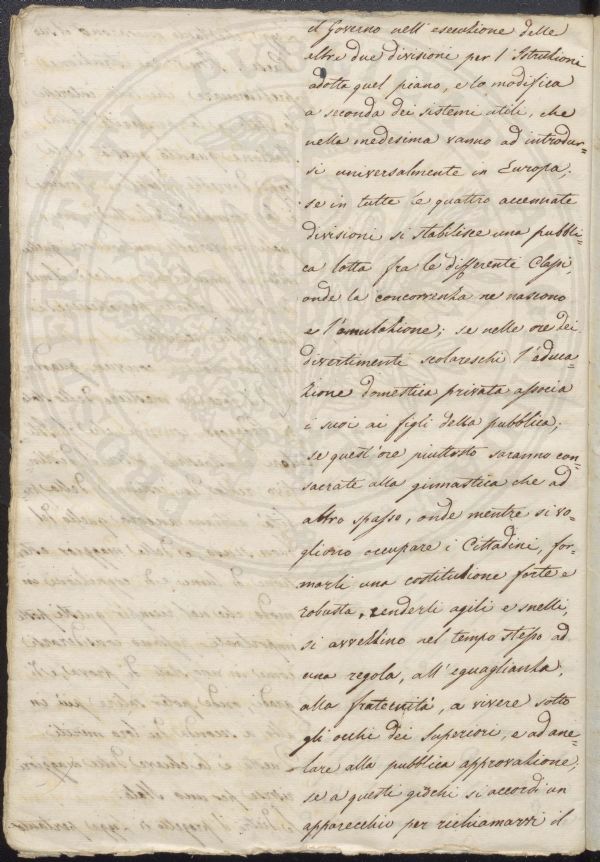 il Governo nell'esecuzione delle
altre due divisioni per l'Istruzioni
adotta quel piano, e lo modifica
a seconda dei sistemi utili, che
nella medesima vanno ad introdur-
si universalmente in Europa;
se in tutte le quattro accennate
divisioni si stabilisce una pubbli-
ca lotta fra le differenti Classi,
onde la concorrenza ne nascono
e l'emulazione; se nelle ore dei
divertimenti scolareschi l'educa-
zione domestica privata associa
i suoi ai figli della pubblica;
se quest'ore piuttosto saranno con-
sacrate alla ginnastica che ad
altro spasso, onde mentre si vo-
gliono occupare i Cittadini, for-
marli una costituzione forte e
robusta, renderli agili e snelli,
si avvezzino nel tempo stesso ad
una regola, all'eguaglianza,
alla fraternità, a vivere sotto
gli occhi dei Superiori, e ad ane-
lare alla pubblica approvazione;
se a questi giochi si accordi un
apparecchio per richiamarvi il